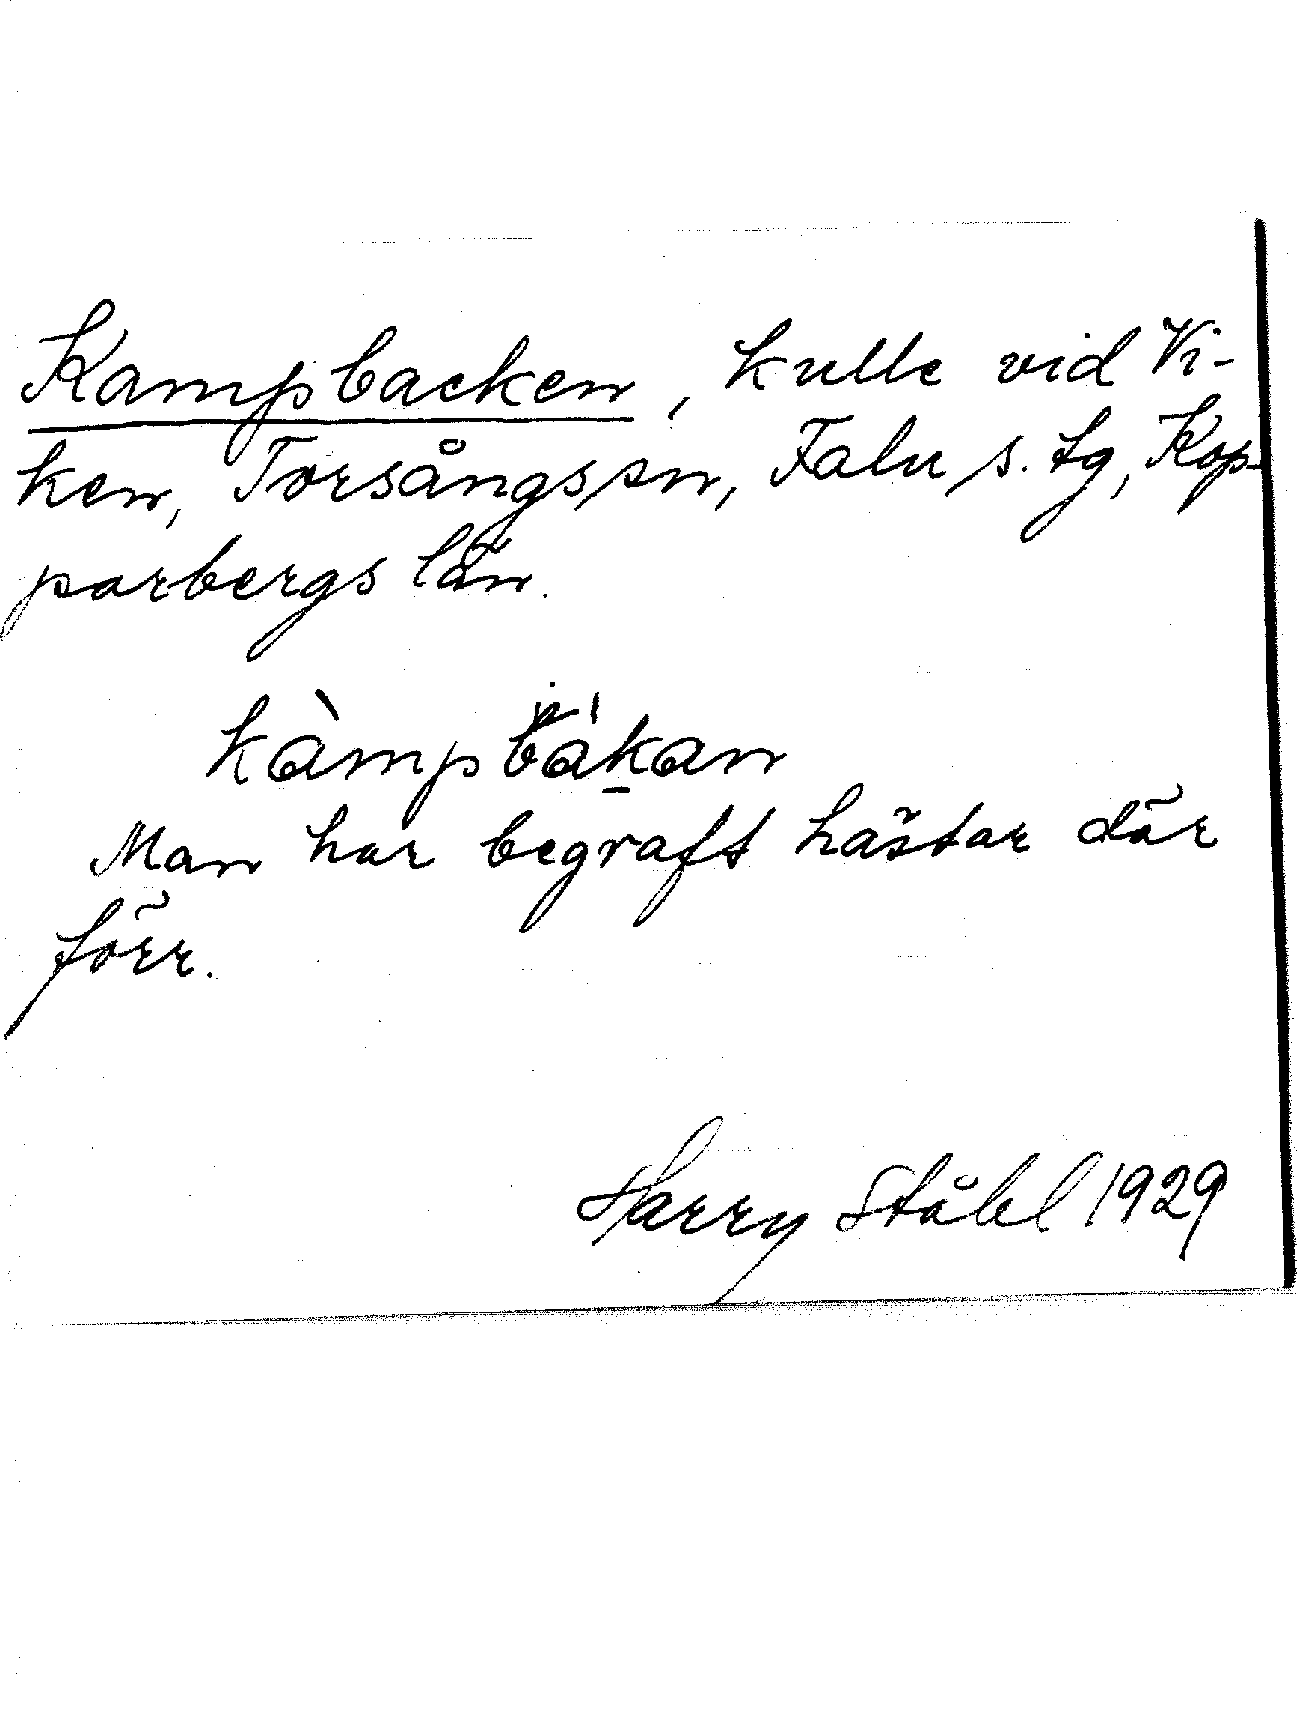 Kampbacken, kulle vid Vi-
ken, Torsångs sn, Falu s. tg, Kop-
parbergs län.
kàmpbákan
Man har begraft hästar där
förr.
Harry Ståhl 1929